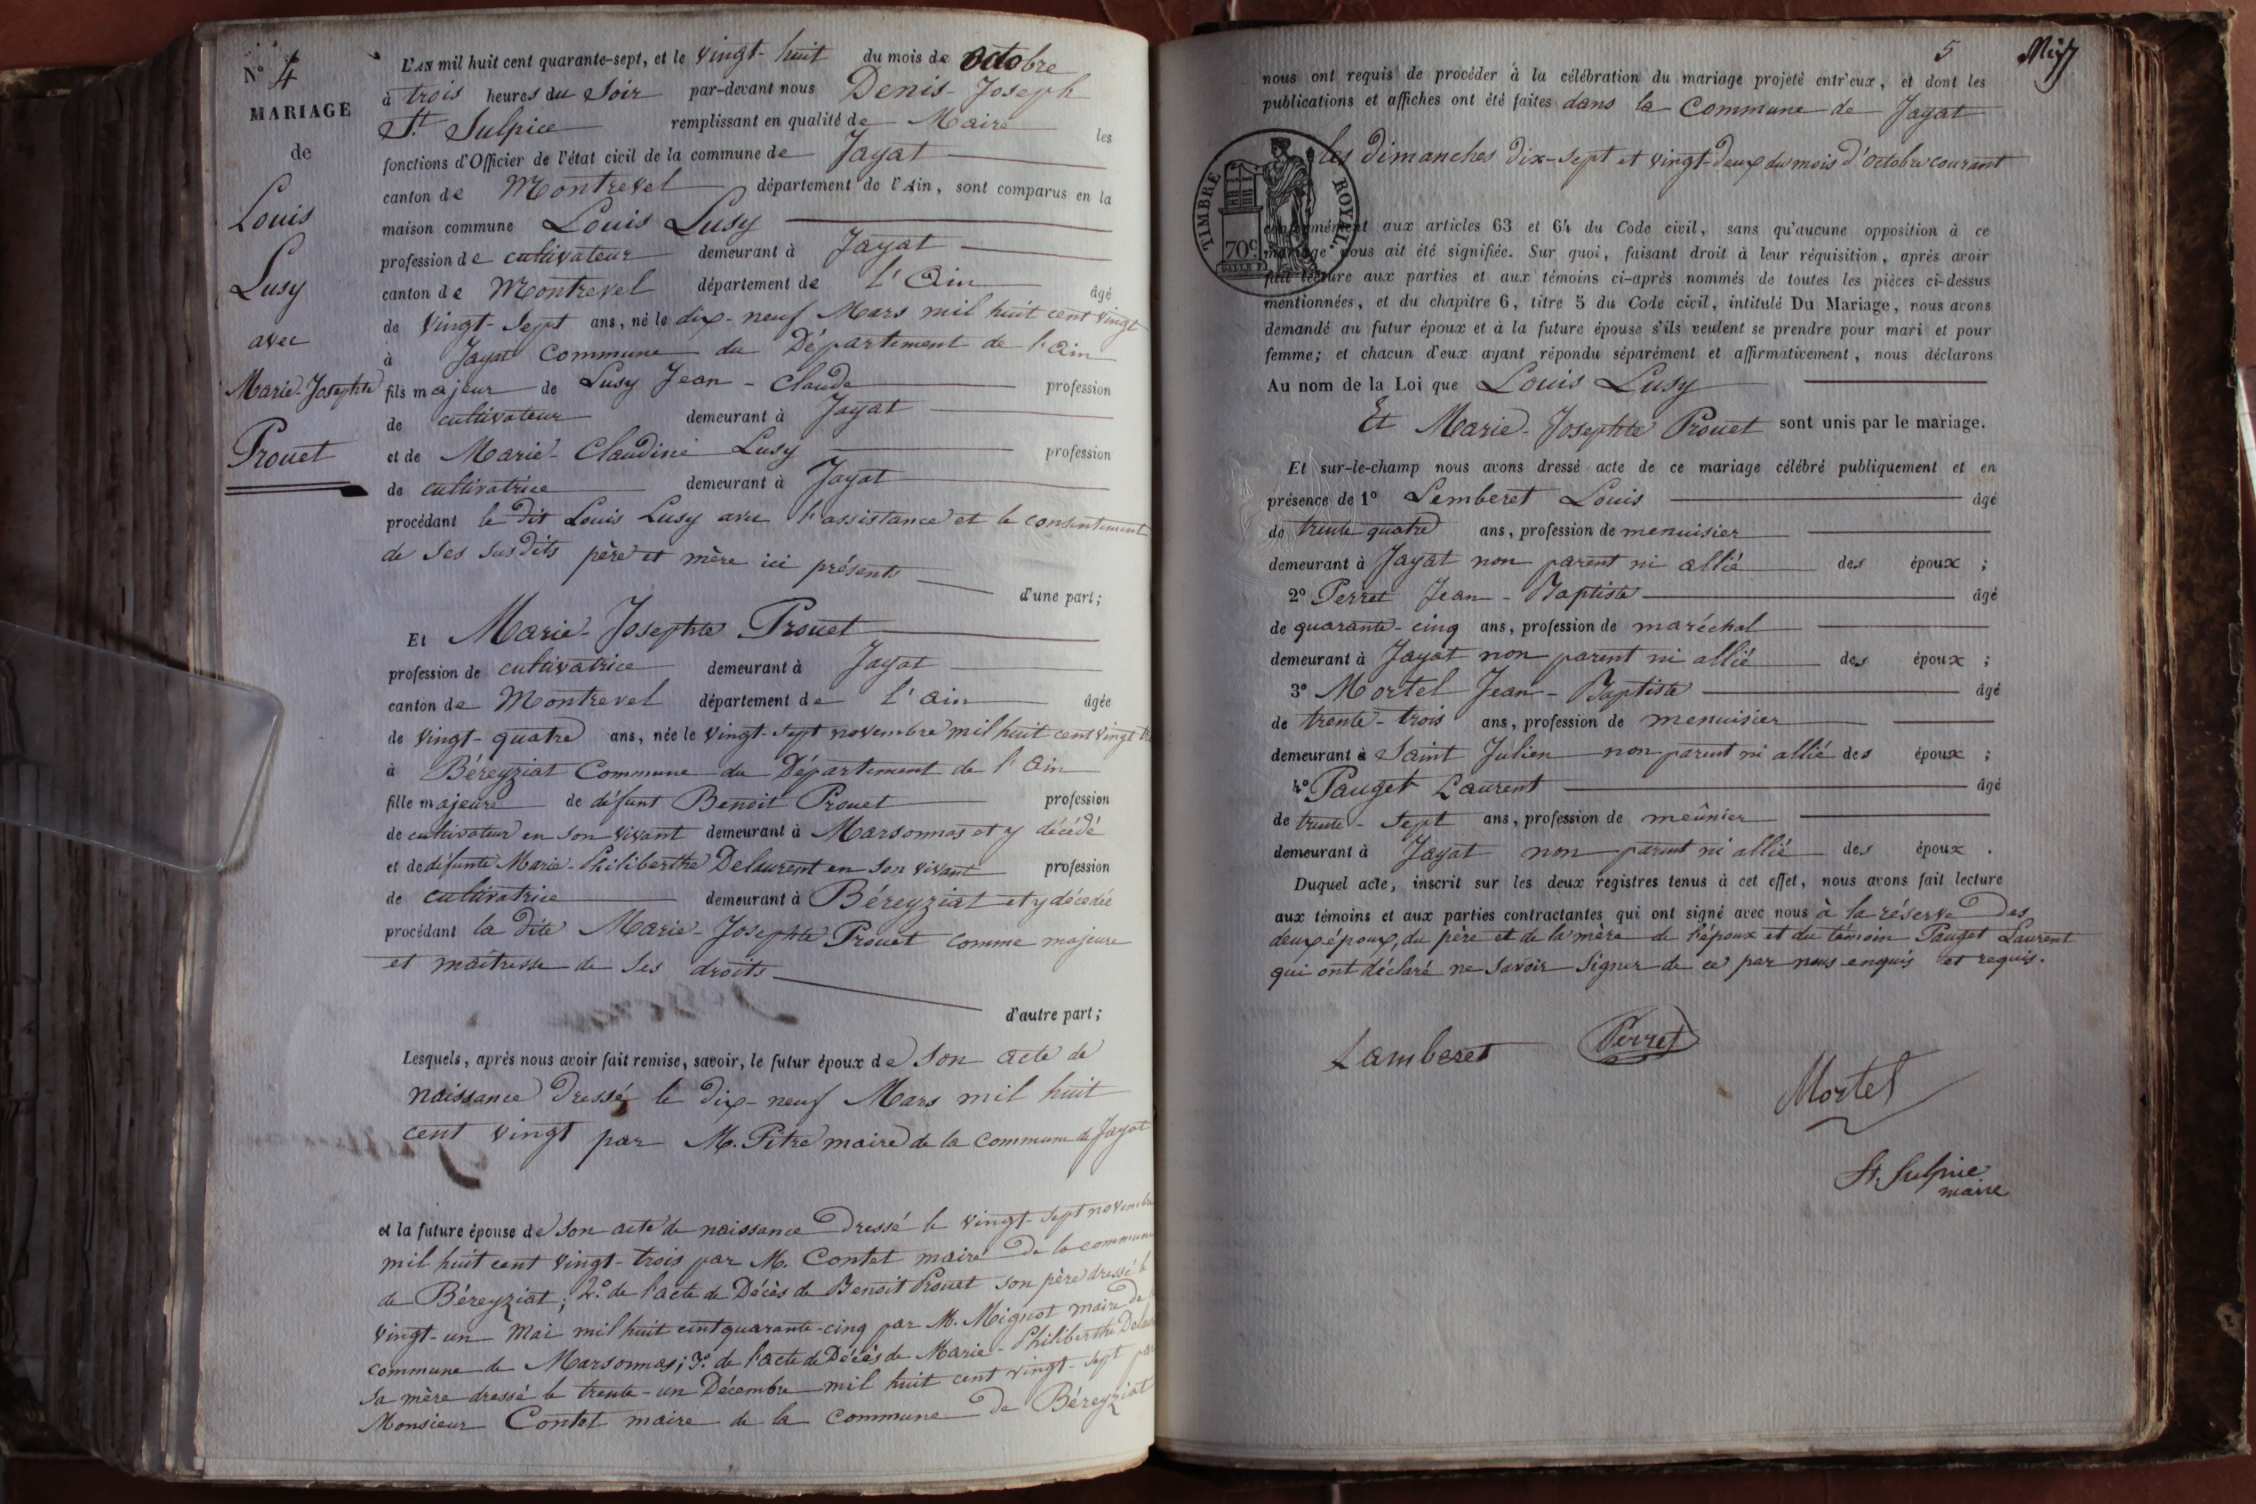 N° 4
MARIAGE
de
Louis
Lusy
avec
Marie-Josephte
Prouet
L'AN mil huit cent quarante-sept, et le vingt-huit du mois de octobre
à trois heures du Soir par-devant nous Denis-Joseph
St. Sulpice remplissant en qualité de Maire les
fonctions d'Officier de l'état civil de la commune de Jayat
canton de Montrevel département de l'Ain, sont comparus en la
maison commune Louis Lusy
profession de cultivateur demeurant à Jayat
canton de Montrevel département de l'Ain âgé
de Vingt-Sept ans, né le dix-neuf Mars mil huit cent vingt
à Jayat Commune du Département de l'Ain
fils majeur de Lusy Jean-Claude profession
de cultivateur demeurant à Jayat
et de Marie-Claudine Lusy profession
de cultivatrice demeurant à Jayat
procédant le dit Louis Lusy avec l'assistance et le consentement
de ses susdits père et mère ici présents
d'une part;
Et Marie-Josephte Prouet
profession de cultivatrice demeurant à Jayat
canton de Montrevel département de l'Ain âgée
de vingt-quatre ans, née le vingt-sept novembre mil huit cent vingt
à Béreyziat Commune du Département de l'Ain
fille majeure de défunt Benoit Prouet profession
de cultivateur en son vivant demeurant à Marsonnas et y décédé
et de défunte Marie-Philiberthe Delaurent en son vivant profession
de cultivatrice demeurant à Béreyziat et y décédée
procédant la dite Marie-Josephte Prouet comme majeure
et maitresse de ses droits
d'autre part;
Lesquels, après nous avoir fait remise, savoir, le futur époux de son acte de
naissance dressé le dix-neuf Mars mil huit
cent vingt par M. Pitre maire de la commune de Jayat
et la future épouse de son acte de naissance dressé le vingt-sept novembre
mil huit cent vingt-trois par M. Contet maire de la commune
de Béreyziat; 2° de l'acte de Décès de Benoit Prouet son père dressé le
vingt-un Mai mil huit cent quarante-cinq par M. Mignot maire de
commune de Marsonnas; 3° de l'acte de Décès de Marie-Philiberthe
sa mère dressé le trente-un Décembre mil huit cent vingt-sept par
Monsieur Contet maire de la commune de Béreyziat
5
nous ont requis de procéder à la célébration du mariage projeté entr'eux, et dont les
publications et affiches ont été faites dans la Commune de Jayat
les dimanches dix-sept et vingt-deux du mois d'octobre courant
TIMBRE ROYAL.
70c.
conformément aux articles 63 et 64 du Code civil, sans qu'aucune opposition à ce
mariage nous ait été signifiée. Sur quoi, faisant droit à leur réquisition, après avoir
fait lecture aux parties et aux témoins ci-après nommés de toutes les pièces ci-dessus
mentionnées, et du chapitre 6, titre 5 du Code civil, intitulé Du Mariage, nous avons
demandé au futur époux et à la future épouse s'ils veulent se prendre pour mari et pour
femme; et chacun d'eux ayant répondu séparément et affirmativement, nous déclarons
Au nom de la Loi que Louis Lusy
Et Marie-Josephte Prouet sont unis par le mariage.
Et sur-le-champ nous avons dressé acte de ce mariage célébré publiquement et en
présence de 1° Lemberet Louis âgé
de trente quatre ans, profession de menuisier
demeurant à Jayat non parent ni allié des époux;
2° Perret Jean-Baptiste âgé
de quarante-cinq ans, profession de maréchal
demeurant à Jayat non parent ni allié des époux;
3° Mortel Jean-Baptiste âgé
de trente-trois ans, profession de menuisier
demeurant à Saint Julien non parent ni allié des époux;
4° Pauget Laurent âgé
de trente-sept ans, profession de meûnier
demeurant à Jayat non parent ni allié des époux.
Duquel acte, inscrit sur les deux registres tenus à cet effet, nous avons fait lecture
aux témoins et aux parties contractantes qui ont signé avec nous à la réserve des
deux époux, du père et de la mère de l'époux et du témoin Pauget Laurent
qui ont déclaré ne savoir signer de ce par nous enquis et requis.
Lamberet Perret
Mortel
St. Sulpice
maire